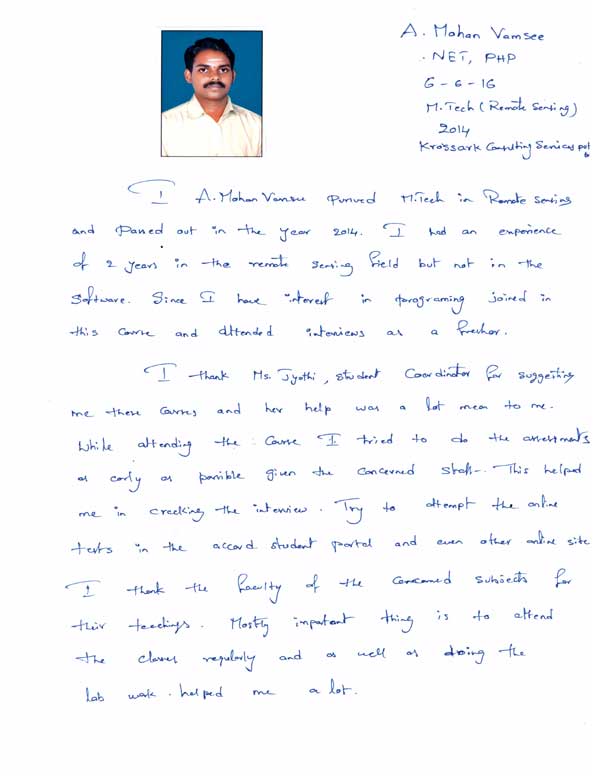 A. Mohan Vamsee
.NET, PHP
6-6-16
M.Tech (Remote Sensing)
2014
Krossark Consulting Services pvt
I A. Mohan Vamsee pursued M.Tech in Remote Sensing
and passed out in the year 2014. I had an experience
of 2 years in the remote sensing field but not in the
Software. Since I have interest in programing joined in
this course and attended interviews as a fresher.
I thank Ms. Jyothi, student Coordinator for suggesting
me these courses and her help was a lot mean to me.
While attending the course I tried to do the assessments
as early as possible given the concerned staff. This helped
me in crecking the interview. Try to attempt the online
tests in the accord student portal and even other online site
I thank the faculty of the concerned subjects for
their teachings. Mostly impotant thing is to attend
the classes regularly and as well as doing the
lab work. helped me a lot.